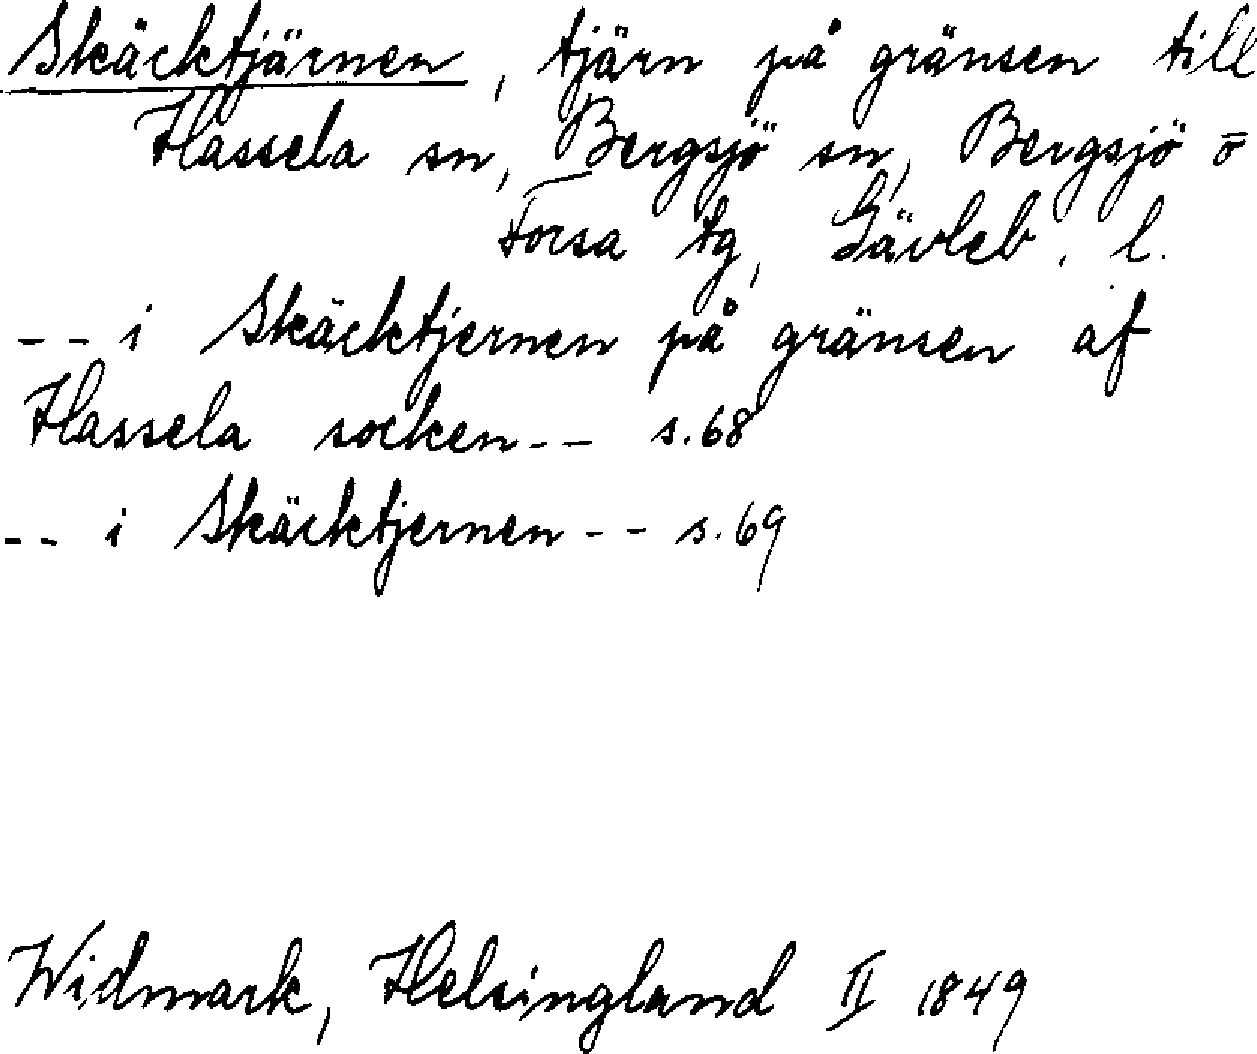 Skäcktjärnen, tjärn på gränsen till
Hassela sn, Bergsjö sn, Bergsjö o
Forsa tg, Gävleb. l.
-- i Skäcktjernen på gränsen af
Hassela socken-- s.68
-- i Skäcktjernen-- s.69
Widmark, Helsingland II 1849